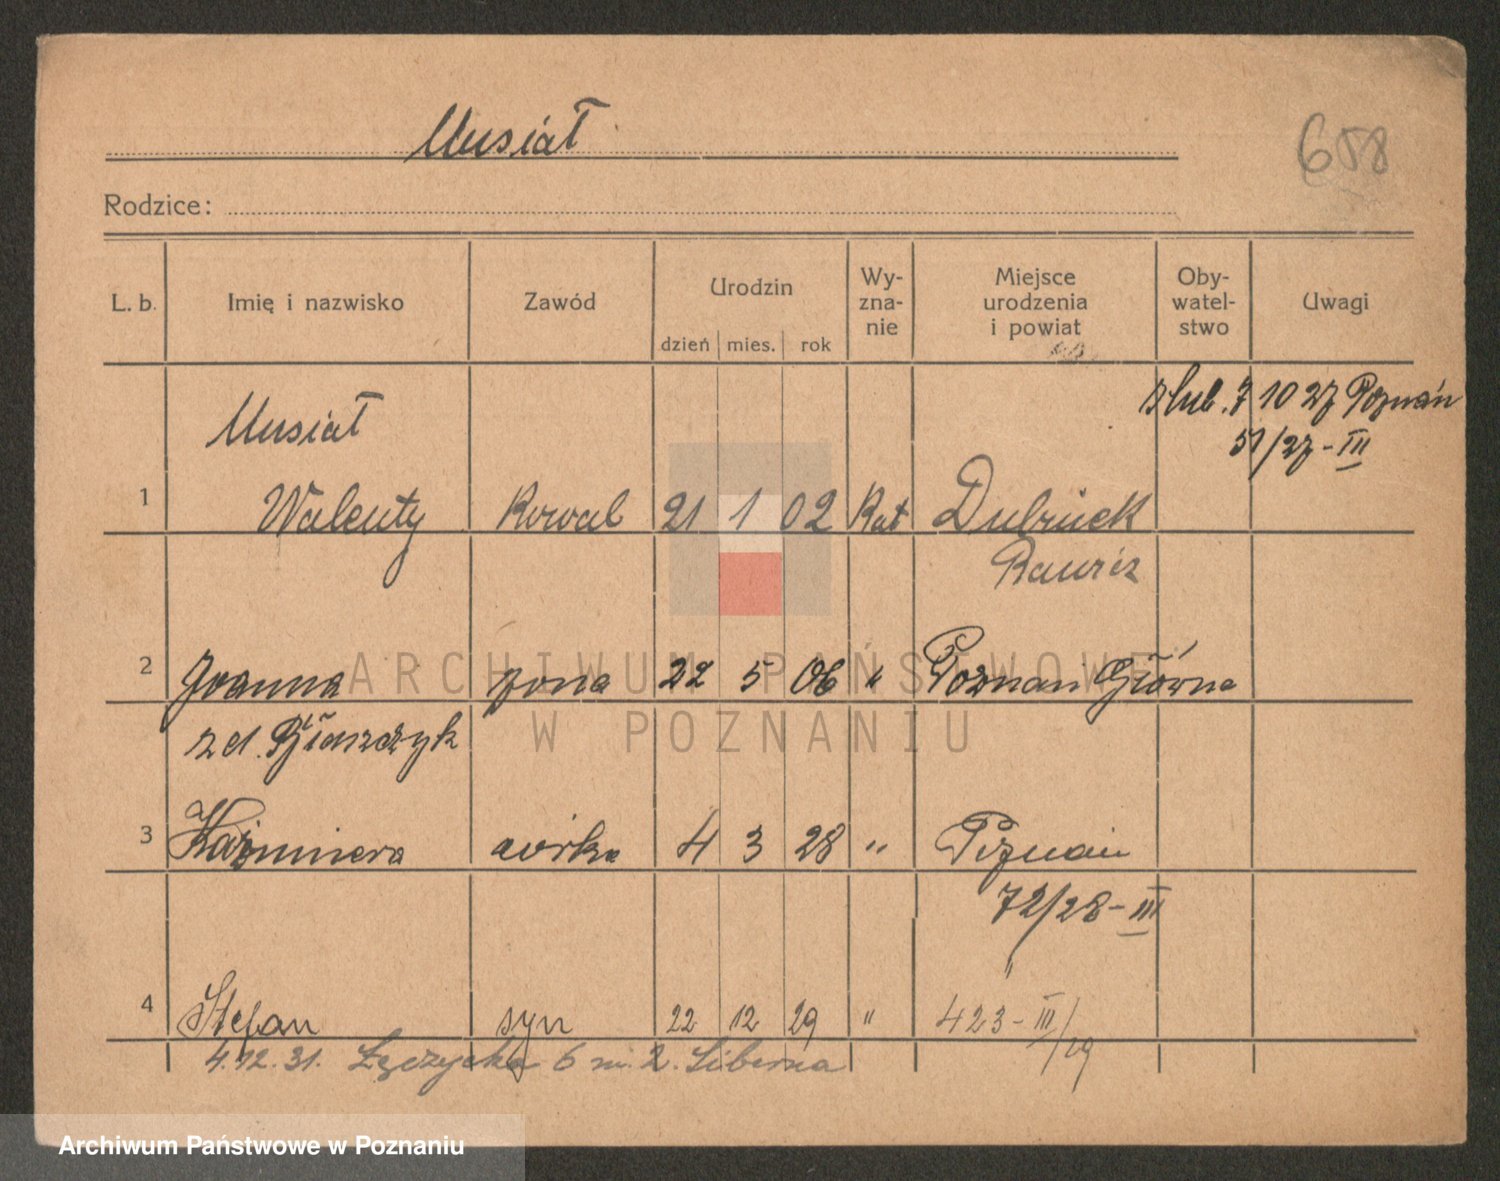 Musiał
658
Rodzice:
L. b. Imię i nazwisko Zawód Urodzin dzień mies. rok Wy-zna-nie Miejsce urodzenia i powiat Oby-watel-stwo Uwagi
ślub. 7 10 27 Poznań
51/27-III
Musiał
1 Walenty Kowal 21 1 02 Kat
2 Joanna żona 22 5 06 " Poznań Główna
z d. Błaszczyk
3 Kazimiera córka 4 3 28 " Poznań
72/28-III
"
4 Stefan syn 22 12 29 " 423-III/29
4.12.31. Łęczycka 6 m. 2.
ARCHIWUM PAŃSTWOWE
W POZNANIU
Archiwum Państwowe w Poznaniu